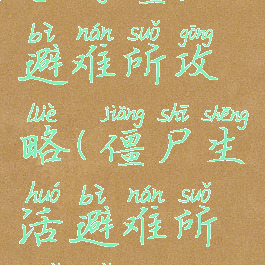 bì nán suǒ gōng
避难所攻
lüè jiāng shī shēng
略(僵尸生
huó bì nán suǒ
活避难所